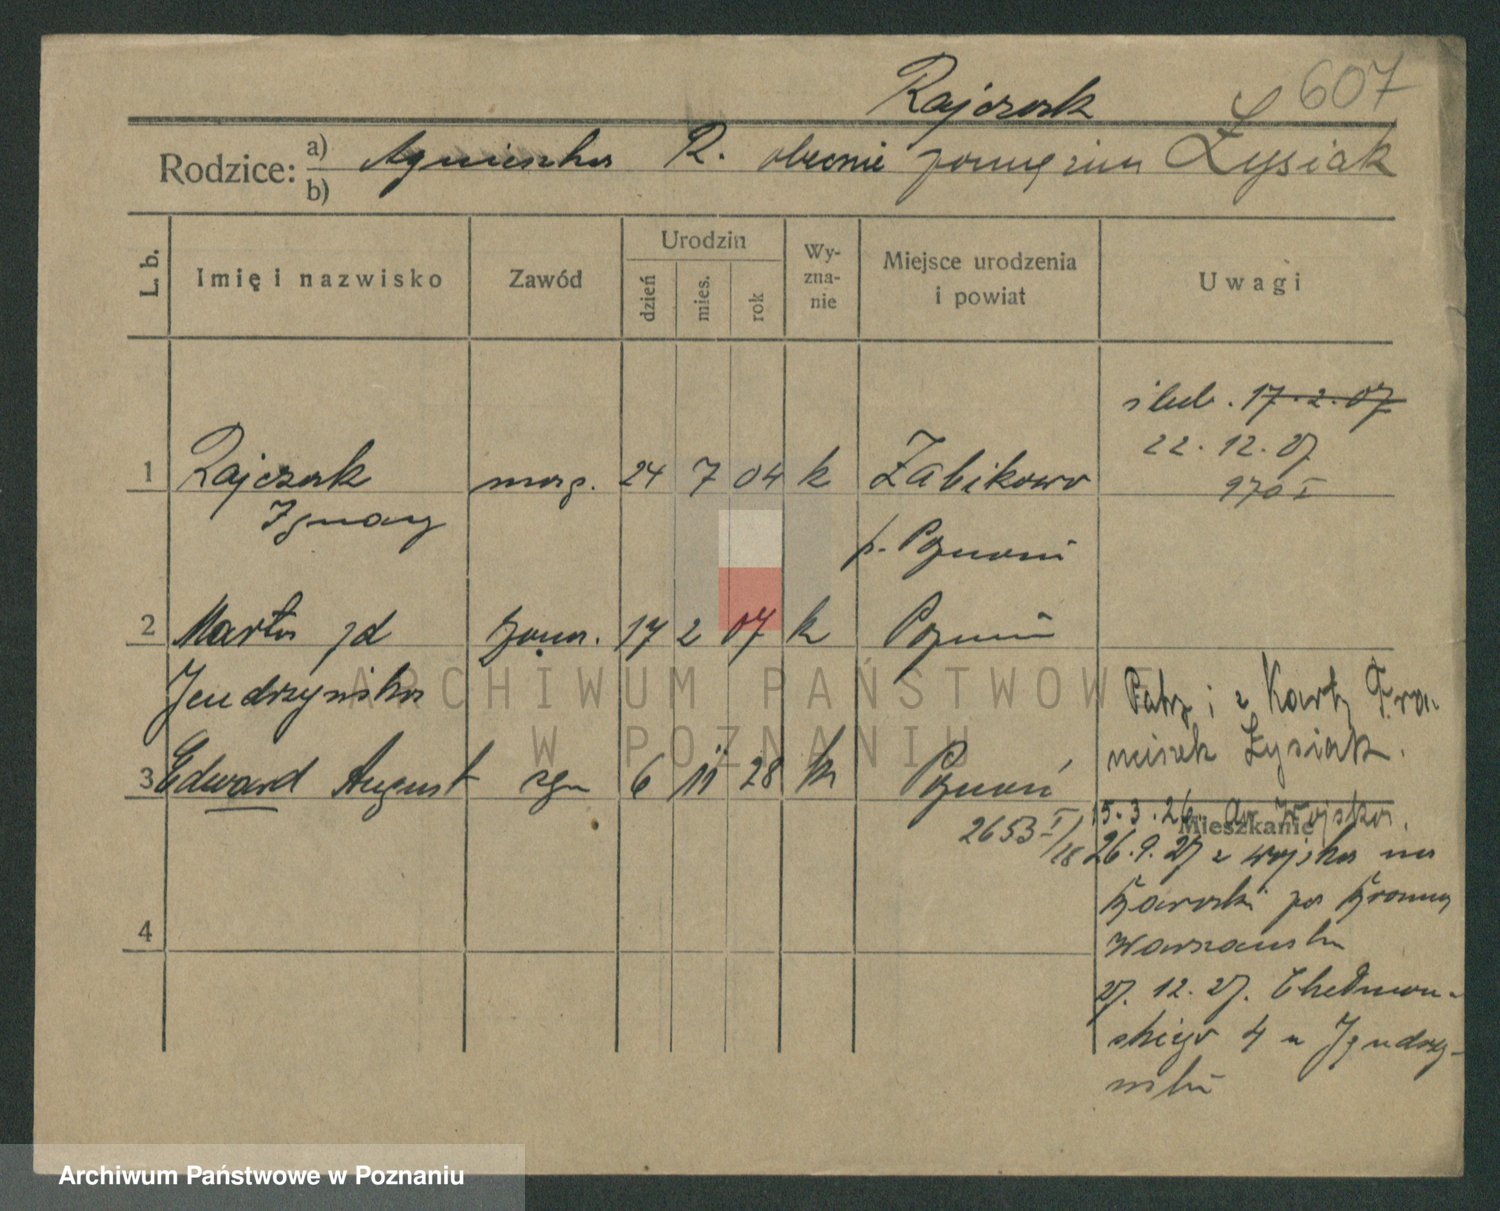 607
Rajczak
Rodzice: a) Agnieszka R. obecnie zamężna Łysiak
b)
L. b.
Imię i nazwisko
Zawód
Urodzin
dzień
mies.
rok
Wy-
zna-
nie
Miejsce urodzenia
i powiat
Uwagi
ślub. 17.2.07
22.12.27
970 I
1 Rajczak 24 7 04 k Żabikowo
Ignacy p. Poznań
2 Marta żona. 17 2 07 k Poznań
Jendrzyńska
Patrz i z Karty Fra-
ciszek Łysiak.
3 Edward August syn 6 11 28 k Poznań
2653 I/28
Mieszkanie
15.3.26. do Wojska.
26.9.27 z wojska na
po
4
27.12.27. Chełmoń-
skiego 4 u Jendrzy-
ARCHIWUM PAŃSTWOWE
W POZNANIU
Archiwum Państwowe w Poznaniu